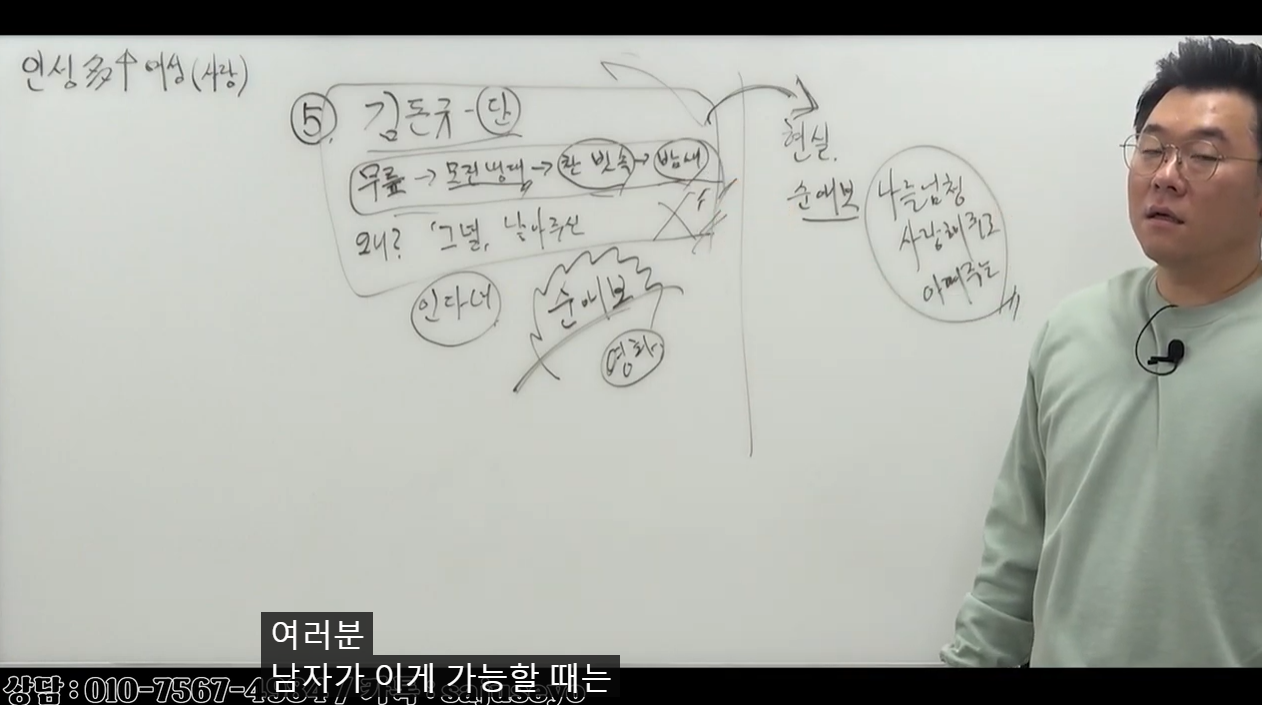 인성 多 여성 (사랑)
⑤ 김돈규 - 단
무릎 → 모진냉대 → 찬 빗속 → 밤새
왜? '그녈, 낳아주신
인다녀
순애보
영화
현실.
순애보
나를 엄청
사랑해주고
아껴주는
여러분
남자가 이게 가능할 때는
상담 : 010-7567-